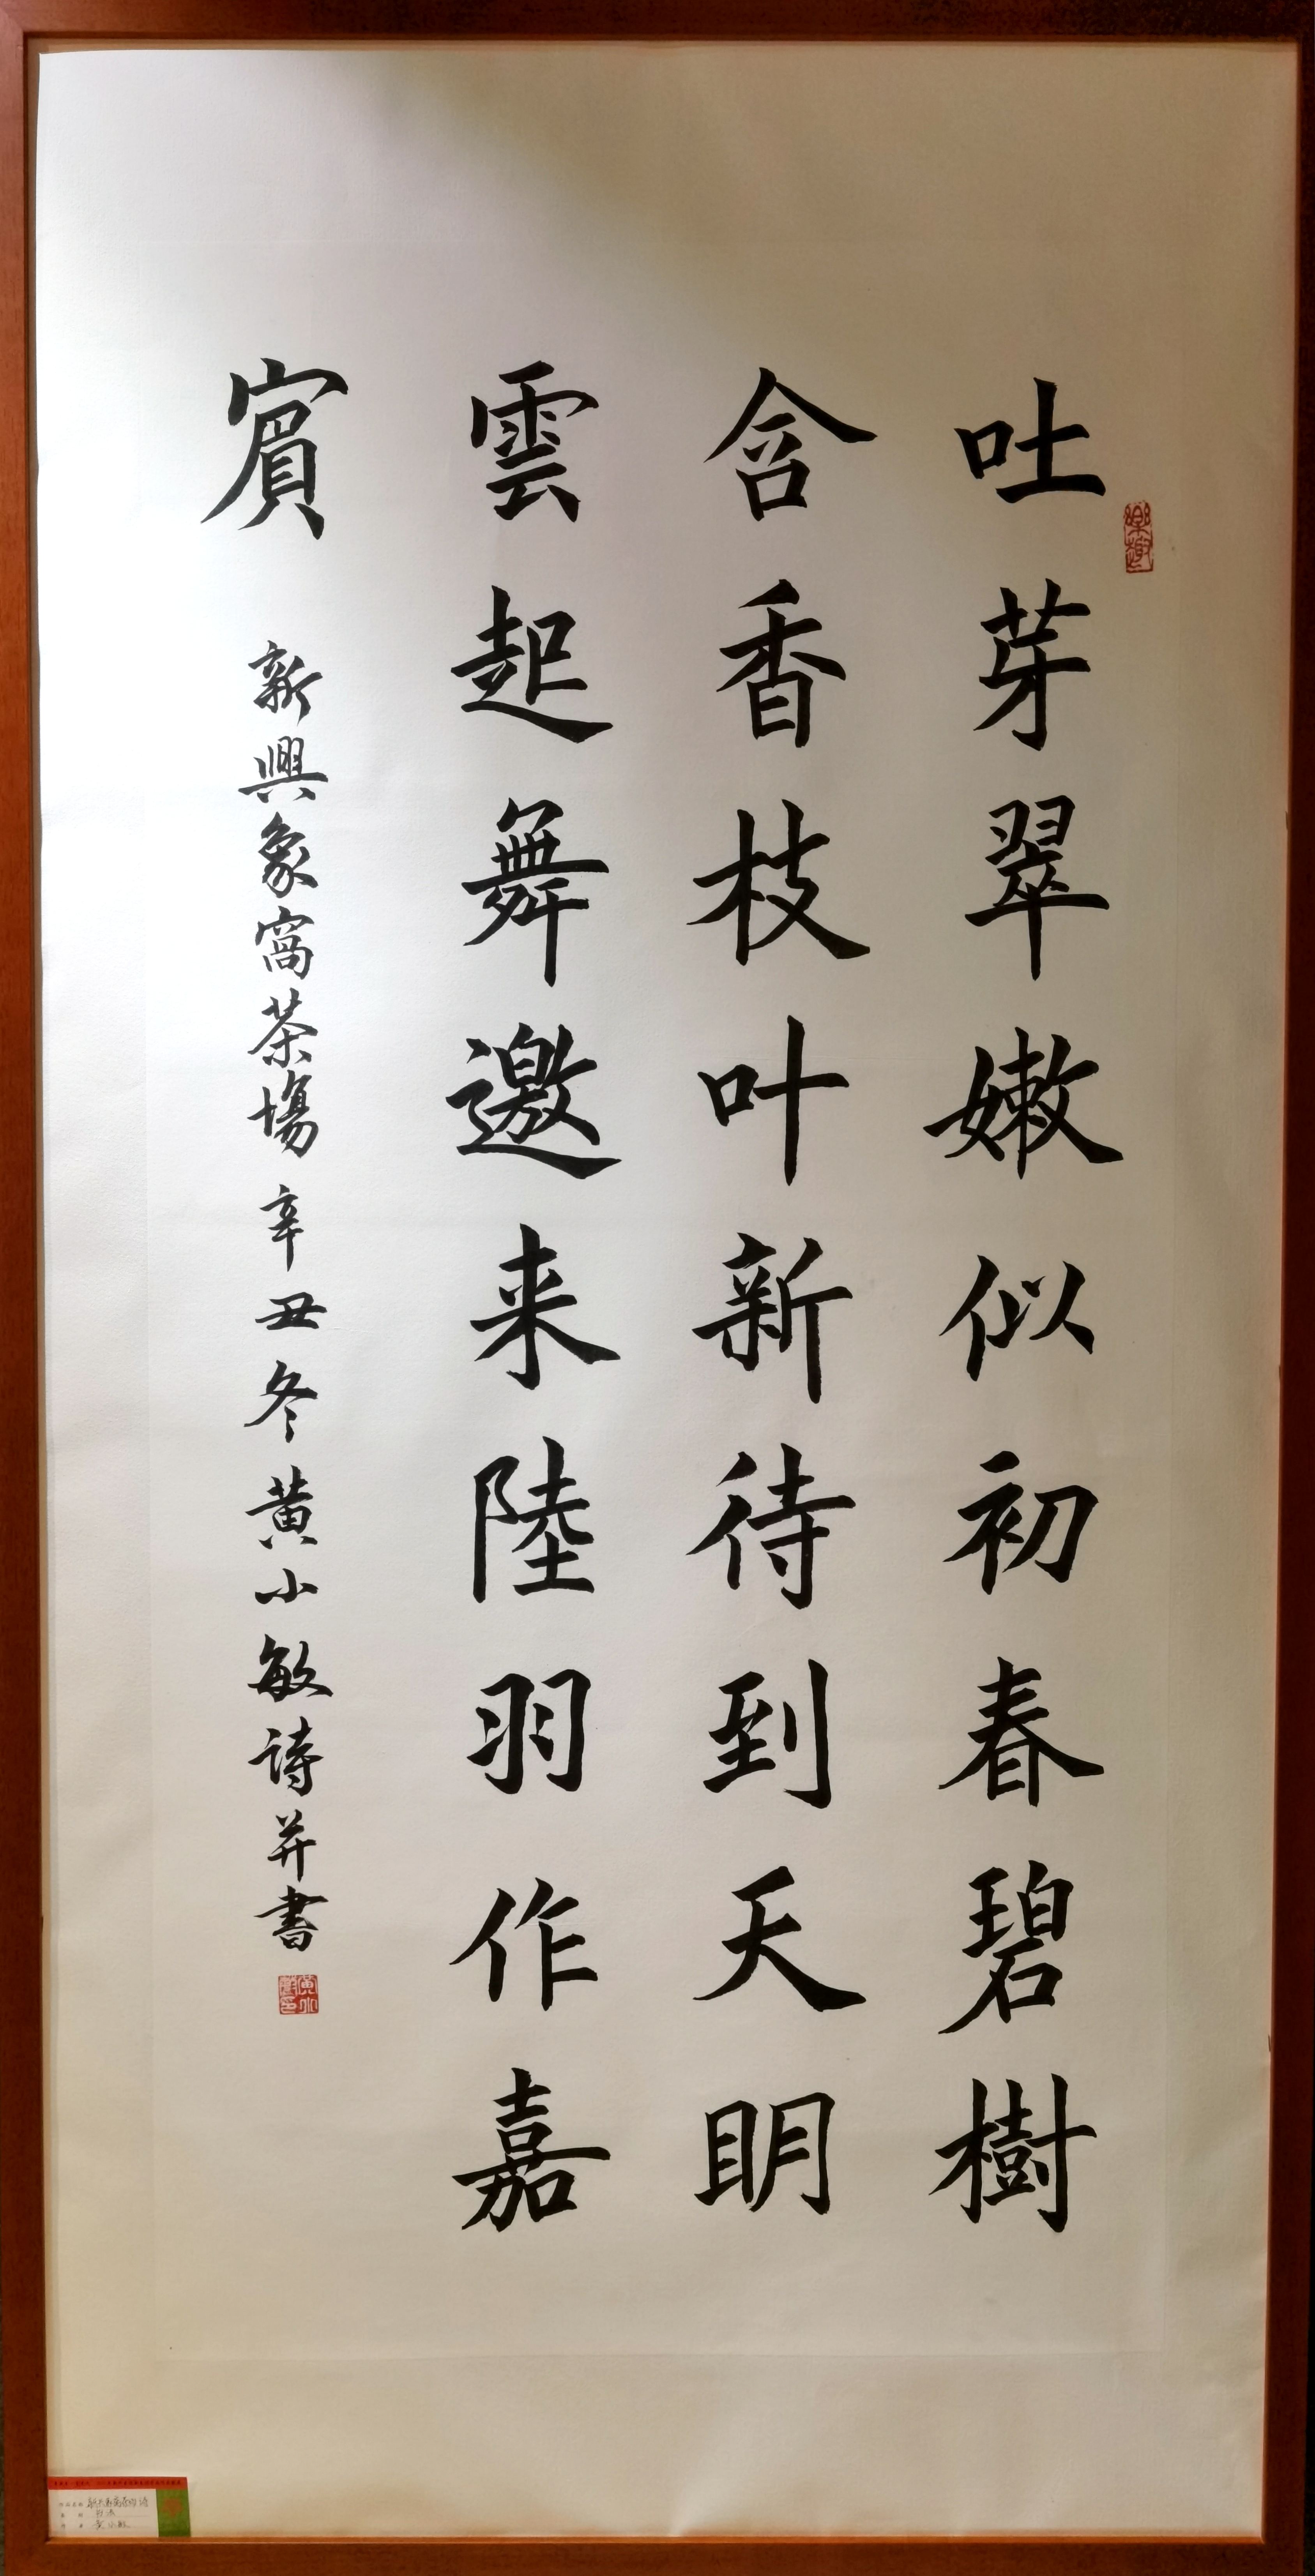 吐芽翠嫩似初春碧樹
含香枝叶新待到天明
雲起舞邀来陸羽作嘉
賓
新興象窩茶場 辛丑冬 黄小敏詩并書
樂趣